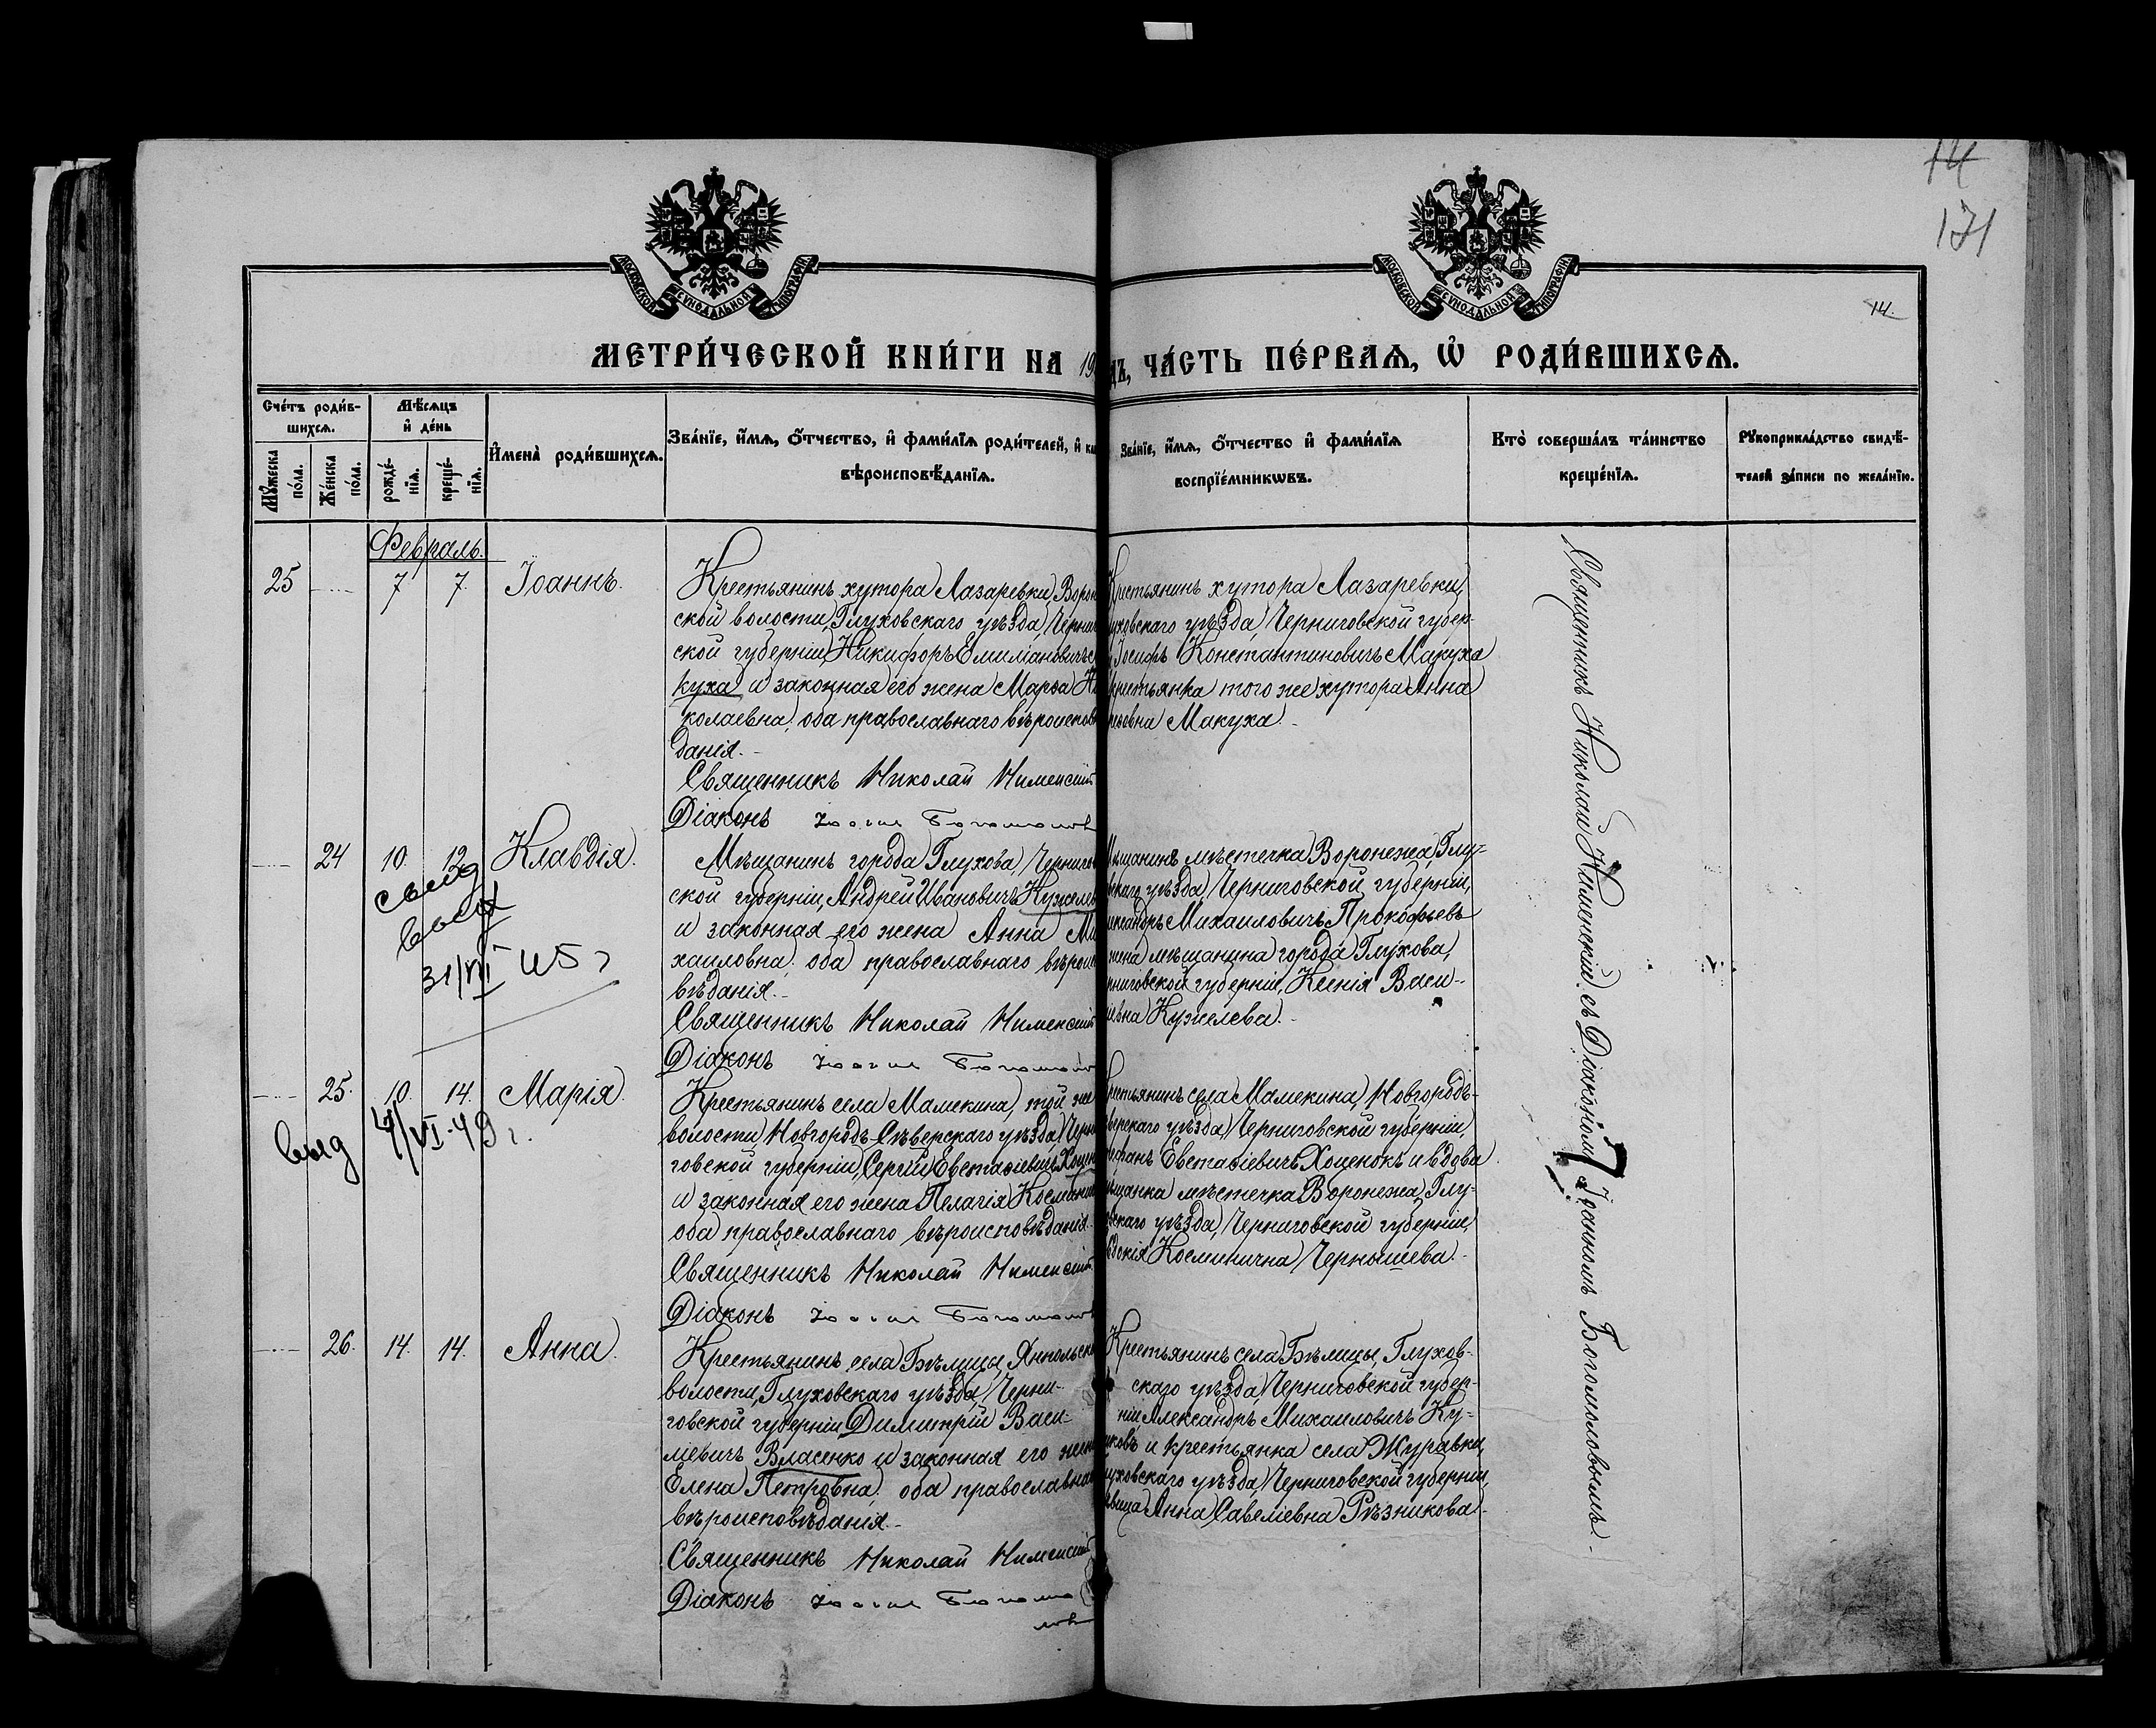 14
171
МОСКОВСКОЙ СУНОДАЛЬНОЙ ТИПОГРАФІИ
МОСКОВСКОЙ СУНОДАЛЬНОЙ ТИПОГРАФІИ
14.
МЕТРИ́ЧЕСКОЙ КНИ́ГИ НА 19
ДЪ, ЧА́СТЬ ПЕ́РВАѦ, Ѡ҆ РОДИ́ВШИХСѦ.
Сче́тъ роди́в-
шихсѧ.
Мꙋ́жеска по́ла.
Же́нска по́ла.
Мѣ́сѧцъ
и҆ де́нь
рожде́-
нїѧ.
креще́-
нїѧ.
И҆мена̀ роди́вшихсѧ.
Зва́нїе, и҆́мѧ, ѻ҆́тчество, и҆ фами́лїѧ роди́телей, и҆
вѣроисповѣ́данїѧ.
Зва́нїе, и҆́мѧ, ѻ҆́тчество и҆ фами́лїѧ
воспрїе́мникѡвъ.
Кто̀ соверша́лъ та́инство
креще́нїѧ.
Рꙋкоприкла́дство свидѣ́-
телей за́писи по жела́нїю.
Февраль.
25 7 7. Іоаннъ.
Крестьянинъ хутора Лазаревки, Ворон
ской волости, Глуховскаго уѣзда, Черниг
ской губерніи, Никифоръ Емиліановичъ
куха и законная его жена Марѳа Ни
колаевна, оба православнаго вѣроисповѣ
данія.-
Священникъ Николай Нименскій
Діаконъ Іоаннъ Богомоловъ
Крестьянинъ хутора Лазаревки,
уховскаго уѣзда, Черниговской губер-
Іосифъ Константиновичъ Макуха
крестьянка того же хутора Анна
Макуха.-
24 10. 12. Клавдія.
выд
31/VII 45 г
Мѣщанинъ города Глухова, Чернигов
ской губерніи, Андрей Ивановичъ Кужелев
и законная его жена Анна Ми
хаиловна, оба православнаго вѣроиспо
вѣданія.-
Священникъ Николай Нименскій
Діаконъ Іоаннъ Богомолов
ѣщанинъ мѣстечка Воронежа, Глу-
вскаго уѣзда, Черниговской губерніи,
лександръ Михаиловичъ Прокофьевъ
жена мѣщанина города Глухова,
рниговской губерніи, Ксенія Васи-
ьевна Кужелева.-
25. 10. 14. Марія.
выд 4/VI-49 г.
Крестьянинъ села Мамекина, той же
волости, Новгородъ-Сѣверскаго уѣзда, Черни
говской губерніи, Сергій Евстафіевичъ Хоцен
и законная его жена Пелагія Космин
оба православнаго вѣроисповѣданія.-
Священникъ Николай Нименскій
Діаконъ Іоаннъ Богомоловъ
рестьянинъ села Мамекина, Новгородъ-
верскаго уѣзда, Черниговской губерніи,
ефанъ Евстафіевичъ Хоценокъ и вдова
ѣщанка мѣстечка Воронежа, Глу-
вскаго уѣзда, Черниговской губерніи,
вдокія Косминична Чернышева.-
26. 14. 14. Анна.
Крестьянинъ села Бѣлицы, Янпольской
волости, Глуховскаго уѣзда, Черни-
говской губерніи, Димитрій Васи-
льевичъ Власенко и законная его жена
Елена Петровна, оба православнаго
вѣроисповѣданія.-
Священникъ Николай Нименскій
Діаконъ Іоаннъ Богомо
ловъ
Крестьянинъ села Бѣлицы, Глухов-
скаго уѣзда, Черниговской губер-
ніи Александръ Михаиловичъ Ку-
иковъ и крестьянка села Журавки,
луховскаго уѣзда, Черниговской губерніи,
ѣвица Анна Савеліевна Рѣзникова.-
Священникъ Николай Нименскій съ Діакономъ Іоанномъ Богомоловымъ.-
7